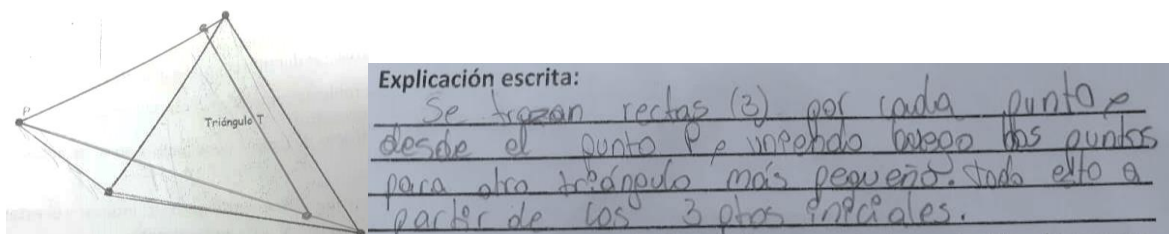 P
Triángulo T
Explicación escrita:
Se trazan rectas (3) por cada punto,
desde el punto P, uniendo luego los puntos
para otro triángulo más pequeño. todo esto a
partir de los 3 ptos iniciales.